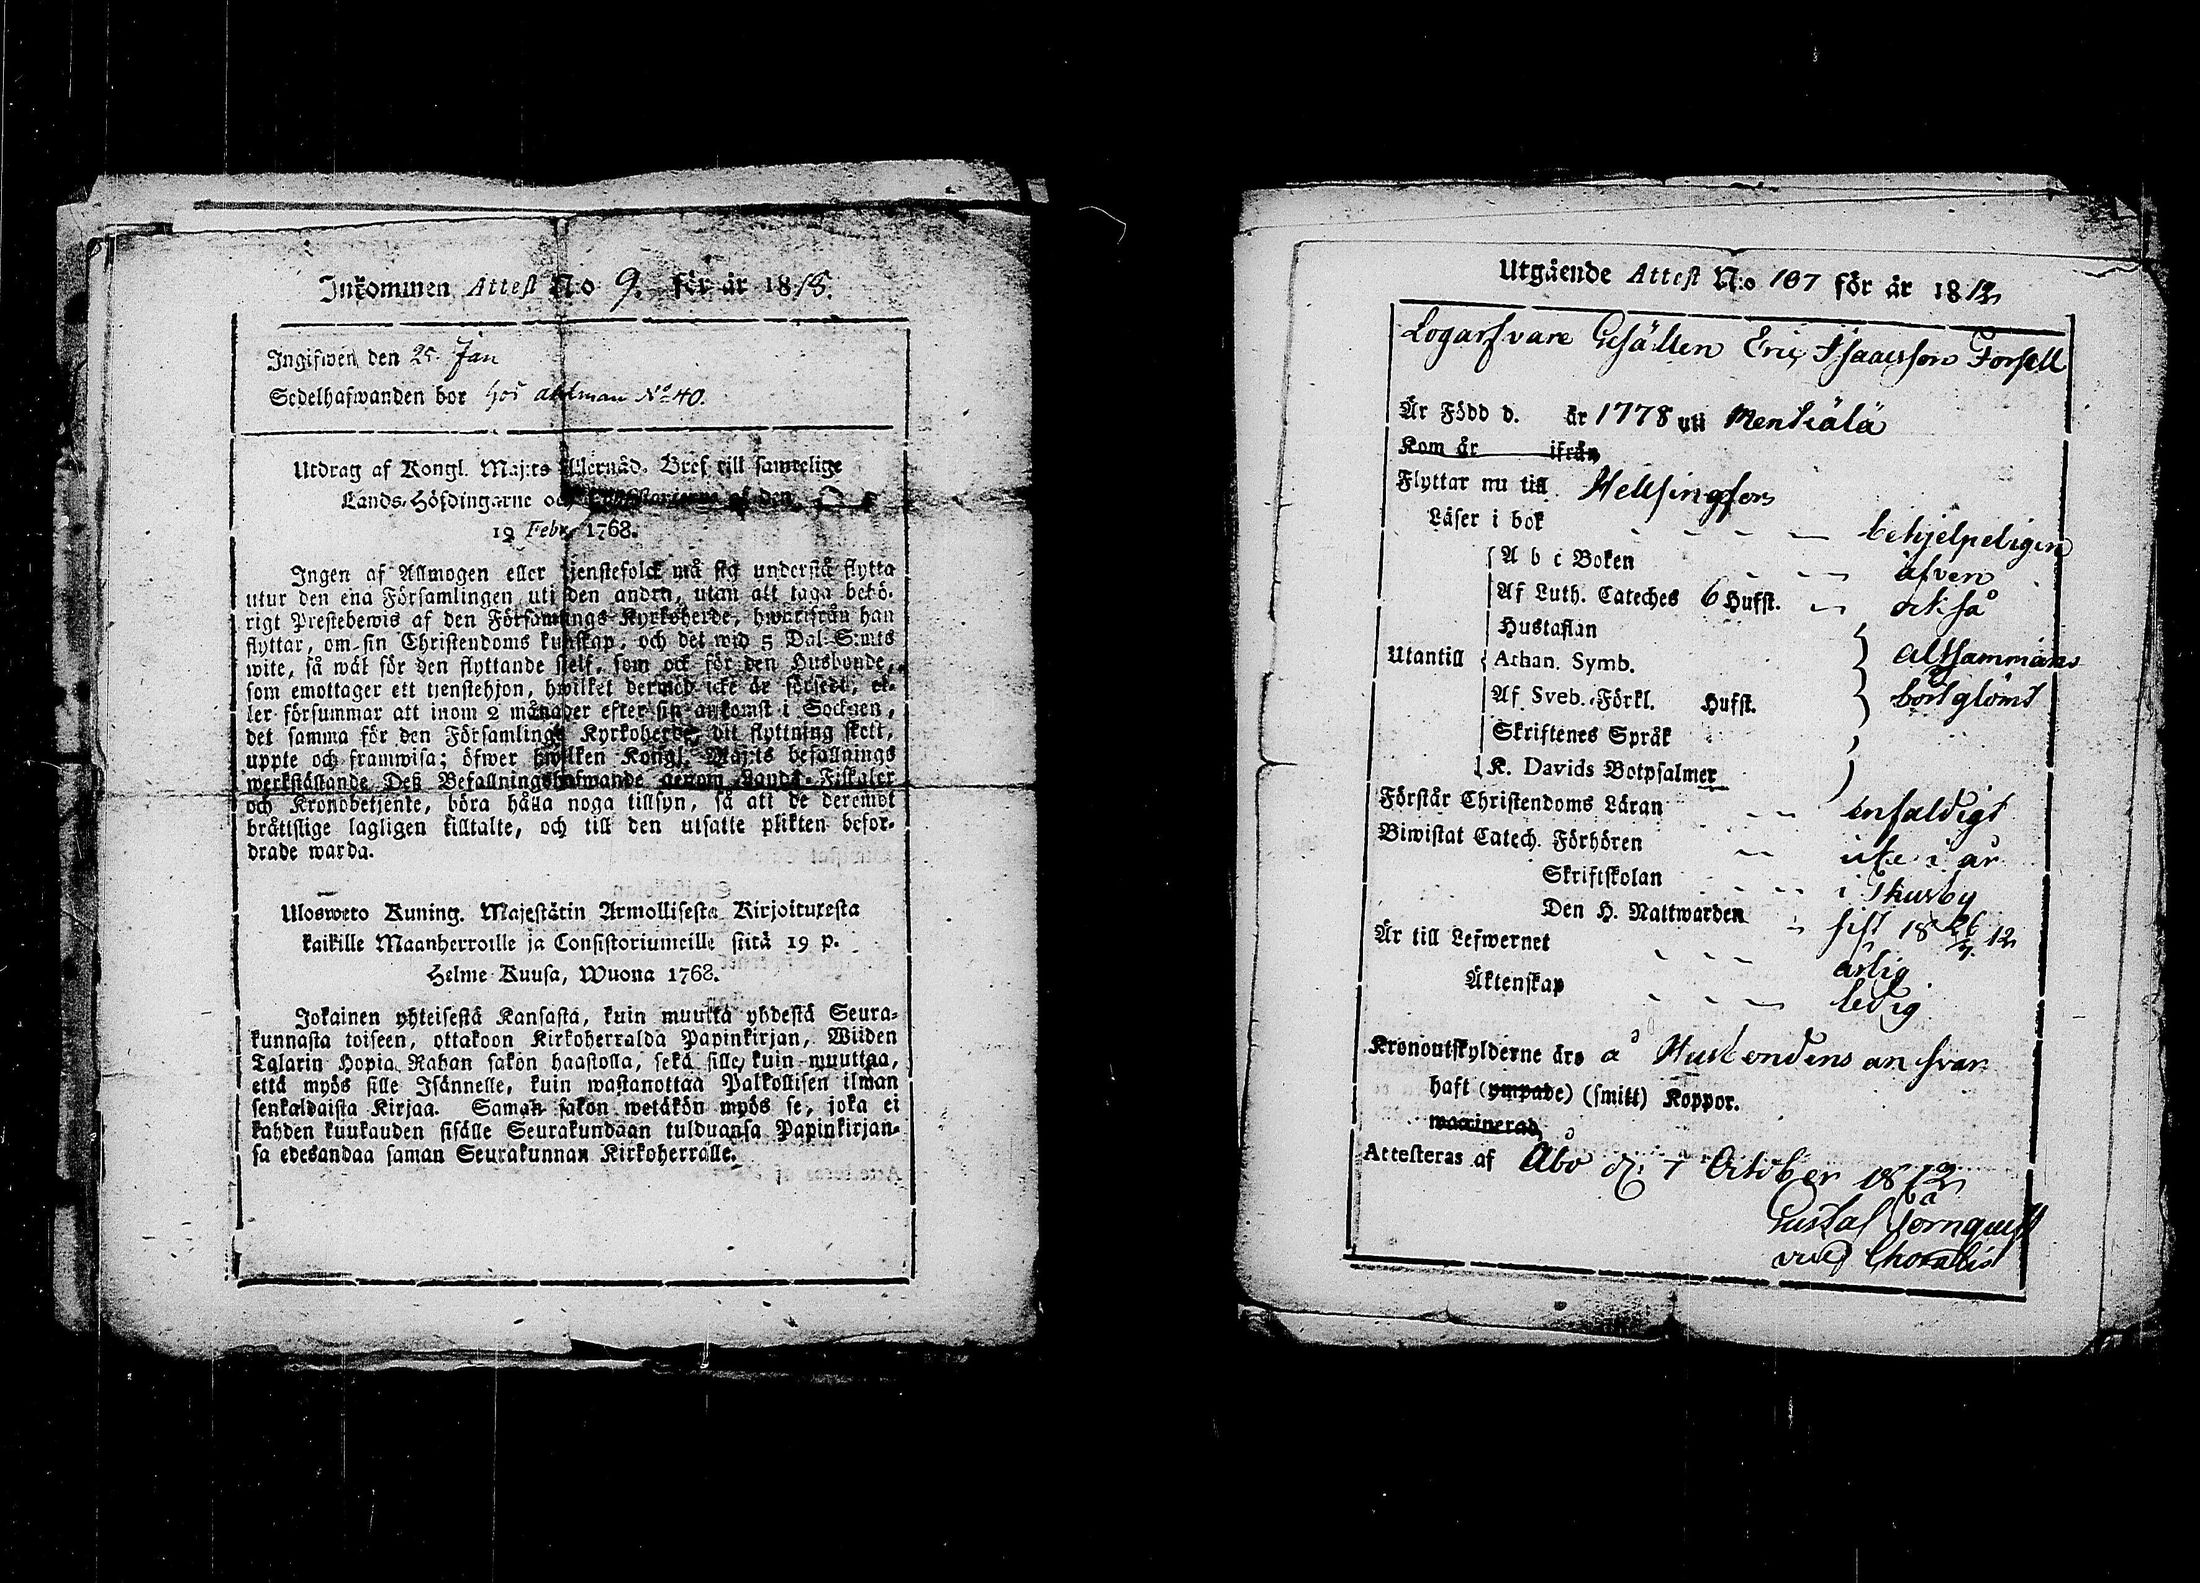 Inkommen Attest N:o 9. för år 1818.
Ingifwen den 25 Jan
Sedelhafwanden bor hos Ahlman No 40.
Utdrag af Kongl. Maj:ts Allernåd. Bref till samtelige
Lands-Höfdingarne och Consistorierne af den
19 Febr. 1768.
Ingen af Allmogen eller tjenstefolck må sig understå flytta
utur den ena Församlingen uti den andra, utan att taga behö-
rigt Prestebewis af den Församlings Kyrkoherde, hwarifrån han
flyttar, om sin Christendoms kunskap, och det wid 5 Dal. S:mts
wite, så wäl för den flyttande sielf, som ock för den Husbonde,
som emottager ett tjenstehjon, hwilket dermed icke är försedt, el-
ler försummar att inom 2 månader efter sin ankomst i Socknen,
det samma för den Församlings Kyrkoherde, dit flyttning skett,
uppte och framwisa; öfwer hwilken Kongl. Maj:ts befallnings
werkställande Deß Befallningshafwande genom Lands-Fiskaler
och Kronobetjente, böra hålla noga tillsyn, så att de deremot
bråttslige lagligen tilltalte, och till den utsatte plikten befor-
drade warda.
Ulosweto Kuning. Majestätin Armollisesta Kirjoituxesta
kaikille Maanherroille ja Consistoriumeille siitä 19 p.
Helme-Kuusa, Wuona 1768.
Jokainen yhteisestä Kansasta, kuin muutta yhdestä Seura-
kunnasta toiseen, ottakoon Kirkoherralda Papinkirjan, Wiiden
Talarin Hopia Rahan sakon haastolla, sekä sille, kuin muuttaa,
että myös sille Isännelle, kuin wastanottaa Palkollisen ilman
senkaldaista Kirjaa. Saman sakon wetäkön myös se, joka ei
kahden kuukauden sisälle Seurakundaan tulduansa Papinkirjan-
sa edesandaa saman Seurakunnan Kirkoherralle.
Utgående Attest N:o 167 för år 1812
Logarfvare Gesällen Eric Isaacsson Forsell
Är Född d. år 1778 uti Menkälä
Kom år ifrån
Flyttar nu till Helsingfors
Läser i bok behjelpeligen
A b c Boken äfven
Af Luth. Cateches 6 Hufst. också
Hustaflan
Utantill Athan. Symb. altsammans
Af Sveb. Förkl. Hufst. bortglömt
Skriftenes Språk
K. Davids Botpsalmer
Förstår Christendoms Läran enfaldigt
Biwistat Catech. Förhören icke i år
Skriftskolan i Thusby
Den H. Nattwarden sist 18 26/7 12
Är till Lefwernet ärlig
Äktenskap ledig
Kronoutskylderne äro å Husbondens ansvar
haft (ympade) (smitt) Koppor.
waccinerad
Attesteras af Åbo d. 7 October 1812
Gustaf Törnquist